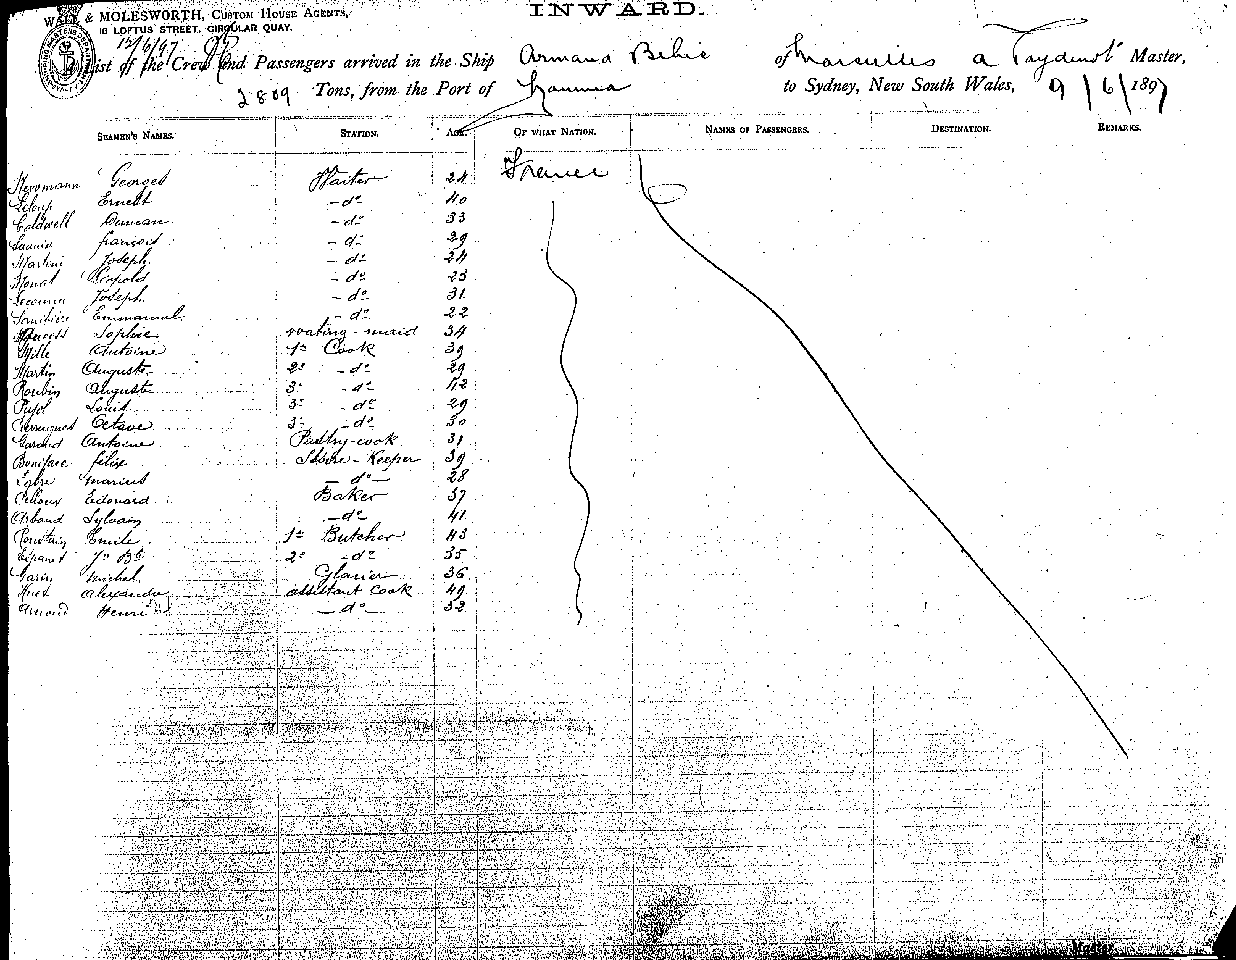 INWARD.
WALL & MOLESWORTH, CUSTOM HOUSE AGENTS,
18 LOFTUS STREET, CIRCULAR QUAY.
12/6/97
List of the Crew and Passengers arrived in the Ship Armand Behic of Marseilles a Master,
2809 Tons, from the Port of to Sydney, New South Wales, 9/6/1897
SEAMEN'S NAMES. STATION. AGE. OF WHAT NATION. NAMES OF PASSENGERS. DESTINATION. REMARKS.
Georges Waiter 24 France
Leloup Ernest -do- 40
Caldwell Duncan -do- 33
François -do- 29
Martini Joseph -do- 24
Monat Léopold -do- 23
Joseph -do- 31
Emmanuel -do- 22
Sophie waiting-maid 34
Mille Antoine 1er Cook 39
Martin Auguste 2e -do- 29
Roubin Auguste 3e -do- 42
Pujol Louis 3e -do- 29
Octave 3e -do- 30
Antoine Pastry-cook 31
Boniface félix Store-Keeper 39
Marius -do- 28
Edouard Baker 37
Arbaud Sylvain -do- 41
Emile 1er Butcher 43
Jn Bte 2e -do- 35
Garin Michel Glacier 36
Huet Alexandre assistant Cook 49
Arnaud Henri -do- 32
Master